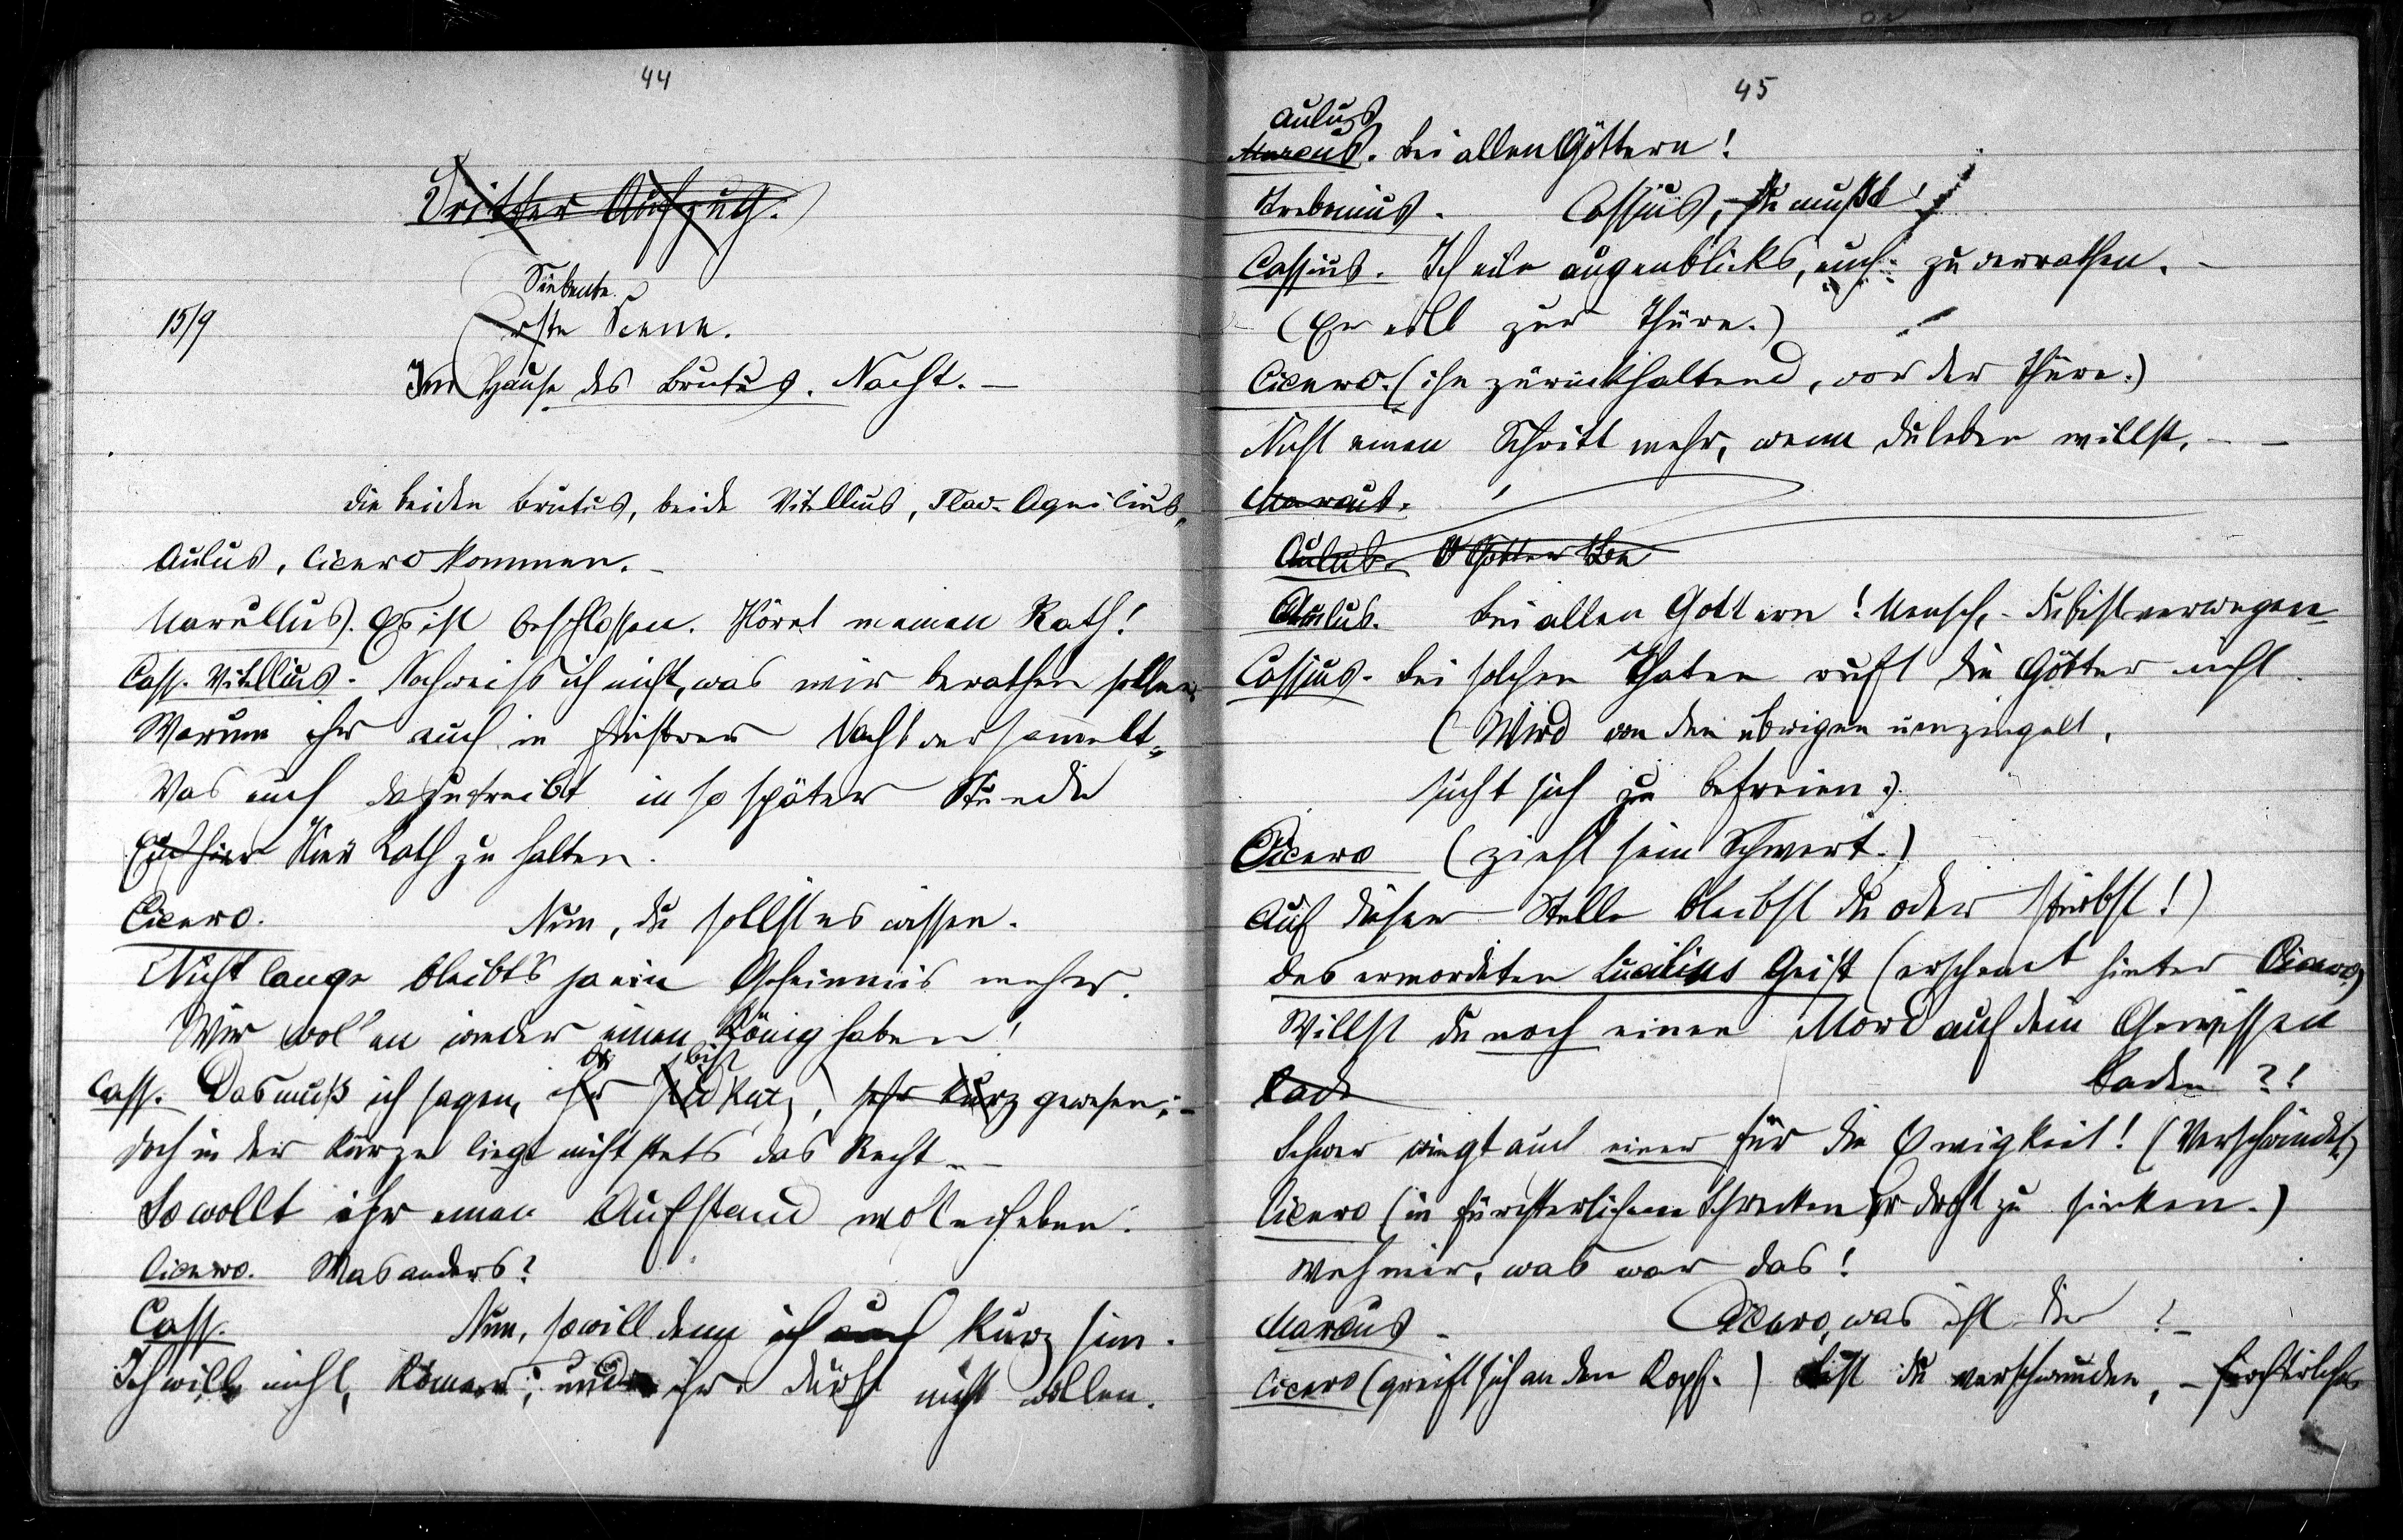 44
Dritter Aufzug.
Siebente
15/9
erste Scene.
Im Hause des Brutus. Nacht. –
die beiden Brutus, beide Vitellius, Flav. Aquilius,
Aulus, Cicero kommen. –
Marullus. Es ist beschlossen. Höret meinen Rath!
Cass. Vitellius. Noch weiß ich nicht, was wir berathen sollen
Warum ihr euch in finstrer Nacht versammelt,
Was euch dazu treibt in so später Stunde
Euch hier Hier Rath zu halten.
Cicero. Nun, du sollst es wissen.
Nicht lange bleibt's ja ein Geheimnis mehr.
Wir woll'en wieder einen König haben!
du bist
Cass. Das muß ich sagen, ihr seid kurz, sehr kurz gewesen; –
doch in der Kürze liegt nicht stets das Recht. –
So wollt ihr einen Aufstand wol erheben.
Cicero. Was anders?
Cass. Nun, so will denn ich auch kurz sein.
Ich will nicht, Römer; und ihr dürft nicht wollen.
45
Aulus
Marcus. Bei allen Göttern!
Trebonius. Cassius, – du mußt!
Cassius. Ich eile augenblicks, euch zu verrathen. –
(Er eilt zur Thüre.)
Cicero. (ihn zurückhaltend, vor der Thüre.)
Nicht einen Schritt mehr, wenn du leben willst. – –
Marcus.
Aulus. O Götter
Aulus. Bei allen Göttern! Mensch, – du bist verwegen –
Cassius. Bei solchen Thaten ruft die Götter nicht.
(Wird von den übrigen umzingelt,
sucht sich zu befreien.)
Cicero (zieht sein Schwert.)
Auf dieser Stelle bleibst du oder stirbst!)
des ermordeten Lucilius Geist (erscheint hinter Cicero)
Willst du noch einen Mord auf dein Gewissen
Lade laden?!
Schwer wiegt auch einer für die Ewigkeit! (Verschwindet)
Cicero (in fürchterlichem Schrecken, er droht zu sinken.)
Weh mir, was war das!
Marcus – Cicero, was ist dir? –
Cicero (greift sich an den Kopf.) Bist du verschwunden, – fürchterliches